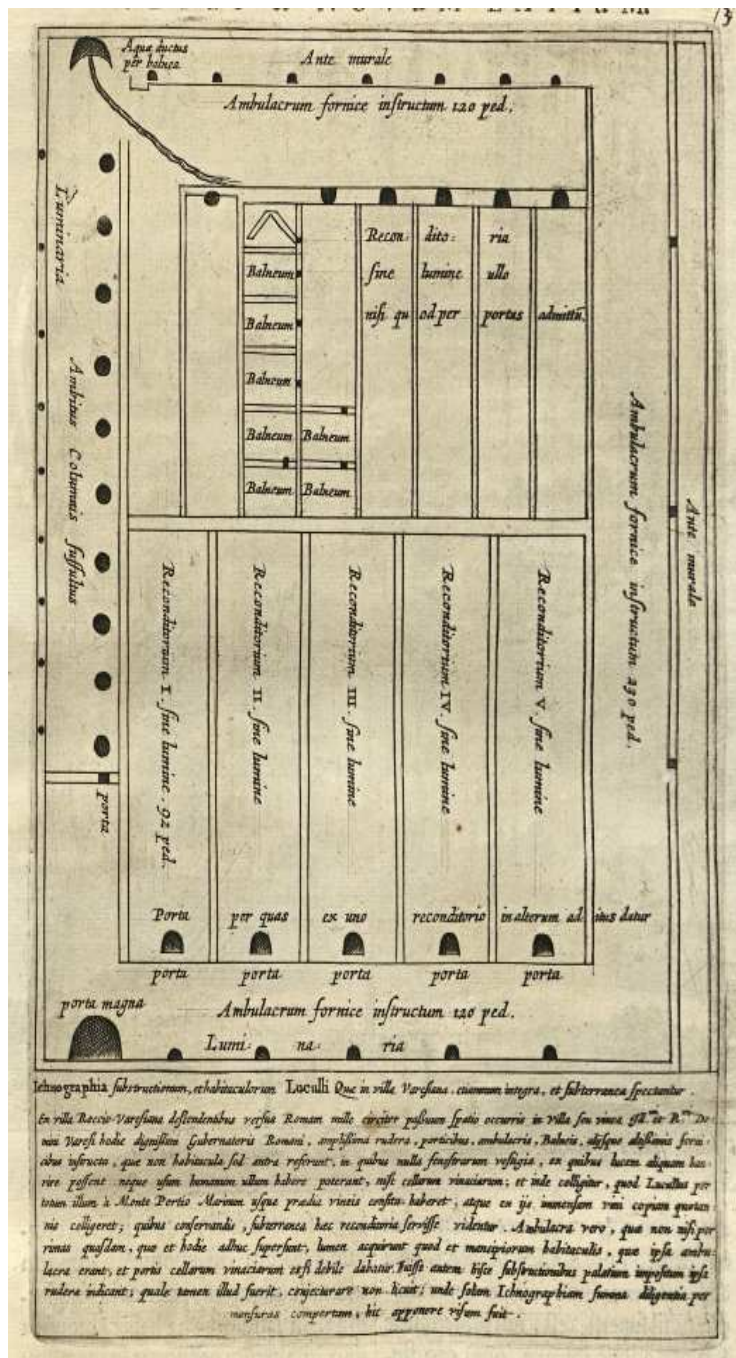 13
Aquæ ductus
per balnea
Ante murale
Ambulacrum fornice instructum 120 ped.
Luminaria
Ambitus Columnis suffultus
Balneum
Balneum
Balneum
Balneum Balneum
Balneum Balneum
Recon: dito: ria
sine lumine ullo
nisi qu od per portus admittū.
Ambulacrum fornice instructum 230 ped.
Ante murale
Reconditorium I. sine lumine. 92 ped.
Reconditorium II. sine lumine
Reconditorium III. sine lumine
Reconditorium IV. sine lumine
Reconditorium V. sine lumine
porta
Porta per quas ex uno reconditorio in alterum ad itus datur
porta porta porta porta porta
porta magna
Ambulacrum fornice instructum 120 ped.
Lumi: na: ria
Ichnographia substructionum, et habitaculorum Luculli Quæ in villa Varesiana etiamnum integra, et subterranea spectantur.
En villa Roccio-Varesiana descendentibus versus Romam mille circiter passuum spatio occurrit in Villa seu vinea Do-
mini Varesi hodie dignissimi Gubernatoris Romani, amplissima rudera, porticibus, ambulacris, Balneis, aliisque altissimis forni-
cibus instructa, quæ non habitacula sed antra referunt, in quibus nulla fenestrarum vestigia, ex quibus lucem aliquam hau-
rire possent neque usum humanum ullum habere poterant, nisi cellarum vinaciarum; et inde colligitur, quod Lucullus per
totum illum à Monte Portio Marinum usque prædia vineis consita haberet, atque ex ijs immensam vini copiam quotan-
nis colligeret; quibus conservandis, subterranea hæc reconditoria servisse videntur. Ambulacra vero, quæ non nisi per
rimas quasdam, quæ et hodie adhuc supersunt, lumen acquirunt quod et mancipiorum habitaculis, quæ ipsa ambu-
lacra erant, et portis cellarum vinaciarum etsi debile dabatur. Fuisse autem hisce substructionibus palatium impositum ipsa
rudera indicant; quale tamen illud fuerit, conjecturare non licuit; unde solam Ichnographiam summa diligentia per
mensuras compertam, hic apponere visum fuit.